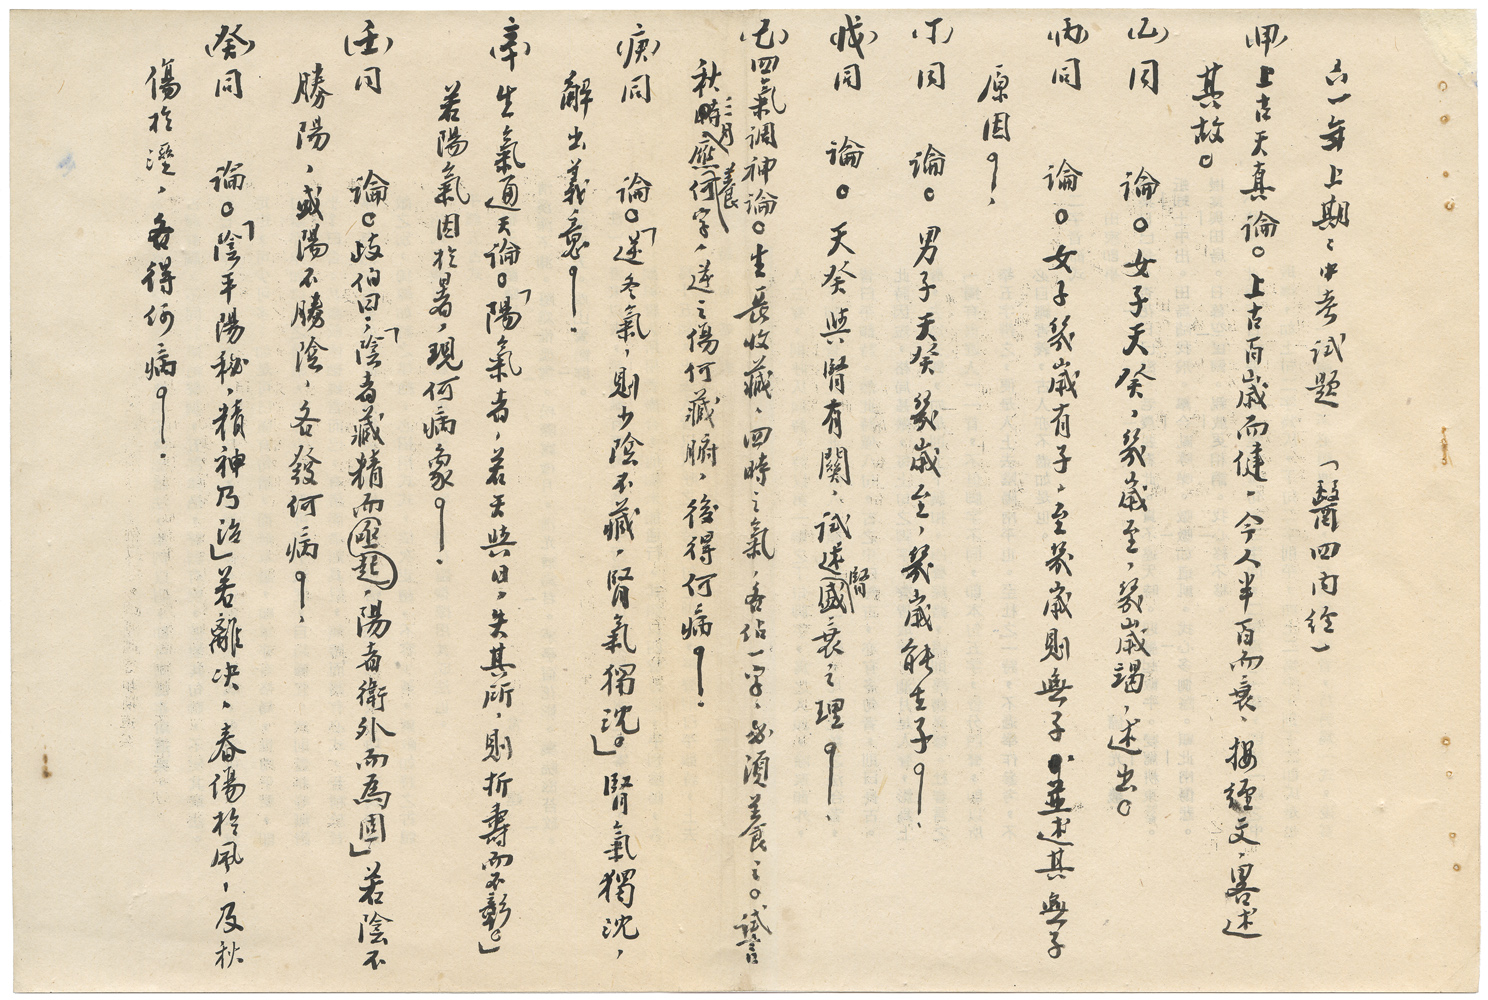 六一年上期期中考試題 「醫四內經」
(甲)上古天真論。上古百歲而健,今人半百而衰,按經文,畧述
其故。
(乙)同 論。女子天癸,幾歲至,幾歲竭,述出。
(丙)同 論。女子幾歲有子,至幾歲則無子並述其無子
原因?
(丁)同 論。男子天癸幾歲至,幾歲能生子?
(戊)同 論。天癸與腎有關,試述腎盛衰之理?
(己)四氣調神論。生長收藏,四時之氣,各佔一字,必須養之。試言
秋時三月應養何字,逆之傷何藏腑,後得何病?
(庚)同 論。「逆冬氣,則少陰不藏,腎氣獨沈。」腎氣獨沈,
解出義意?
(辛)生氣通天論。「陽氣者,若天與日,失其所,則折壽而不彰。」
若陽氣因於暑,現何病象?
(壬)同 論。岐伯曰:「陰者藏精而亟起,陽者衛外而為固」若陰不
勝陽,或陽不勝陰,各發何病?
(癸)同 論。「陰平陽秘,精神乃治」若離决,春傷於風,及秋
傷於溼,各得何病?